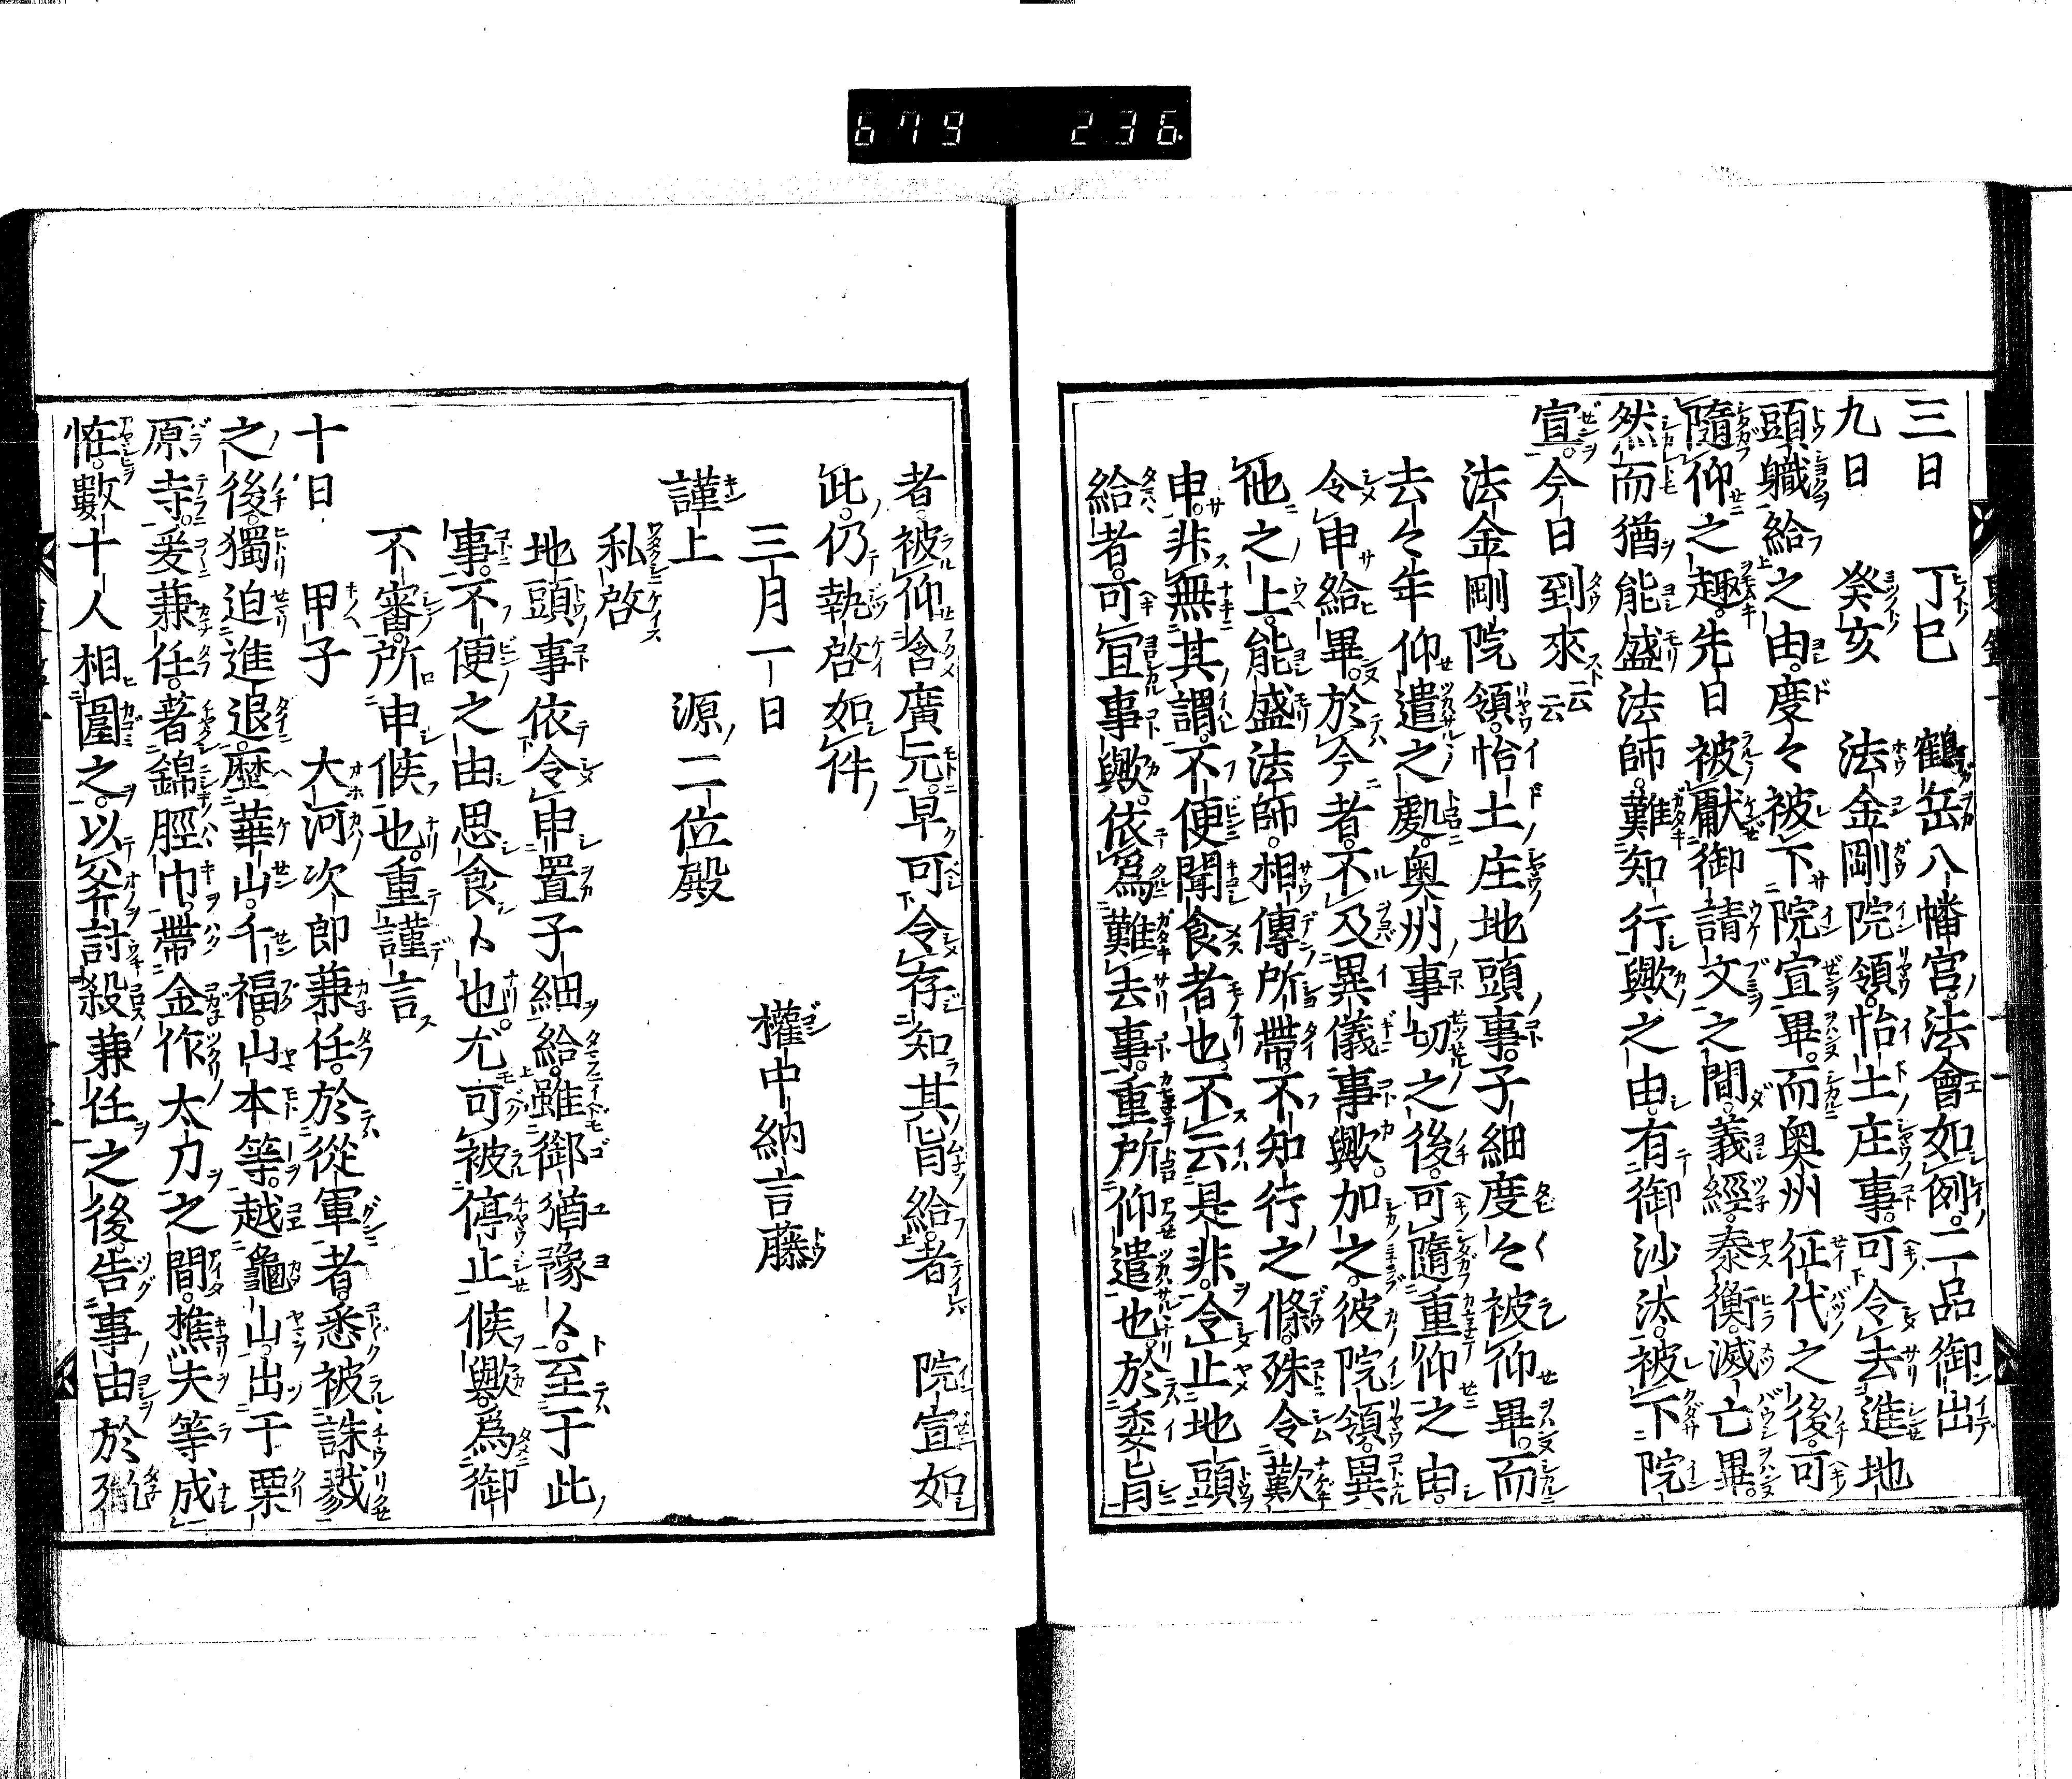 679 236
三日 丁巳 鶴岳八幡宮法會如例二品御出
九日 癸亥 法金剛院領怡土庄事可令去進地
頭職給之由度々被下院宣畢而奥州征伐之後可
隨仰之趣先日被獻御請文之間義經泰衡滅亡畢
然而猶能盛法師難知行歟之由有御沙汰被下院
宣今日到來云云
法金剛院領怡土庄地頭事子細度々被仰畢而
去々年仰遣之處奥州事切之後可隨重仰之由
令申給畢於今者不及異儀事歟加之彼院領異
他之上能盛法師相傳所帶不知行之條殊令歎
申非無其謂不便聞食者也不云是非令止地頭
給者可宜事歟依爲難去事重所仰遣也於委旨
者被仰含廣元早可令存知其旨給者 院宣如
此仍執啓如件
三月一日 權中納言藤
謹上 源二位殿
私啓
地頭事依令申置子細給雖御猶豫候至于此
事不便之由思食候也尤可被停止候歟爲御
不審所申候也重謹言
十日 甲子 大河次郎兼任於從軍者悉被誅戮
之後獨迫進退歷華山千福山本等越龜山出于栗
原寺爰兼任著錦脛巾帶金作太刀之間樵夫等成
恠數十人相圍之以斧討殺兼任之後告事由於